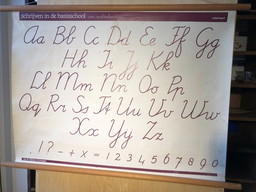 schrijven in de basisschool
Aa Bb Cc Dd Ee Ff Gg
Hh Ii Jj Kk
Ll Mm Nn Oo Pp
Qq Rr Ss Tt Uu Vv Ww
Xx Yy Zz
. , ! ? - + x = 1 2 3 4 5 6 7 8 9 0